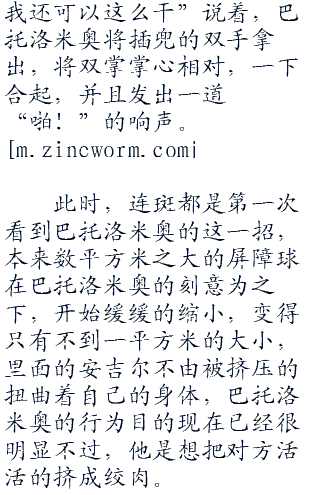 我还可以这么干”说着，巴
托洛米奥将插兜的双手拿
出，将双掌掌心相对，一下
合起，并且发出一道
“啪！”的响声。
[m.zincworm.com|
此时，连斑都是第一次
看到巴托洛米奥的这一招，
本来数平方米之大的屏障球
在巴托洛米奥的刻意为之
下，开始缓缓的缩小，变得
只有不到一平方米的大小，
里面的安吉尔不由被挤压的
扭曲着自己的身体，巴托洛
米奥的行为目的现在已经很
明显不过，他是想把对方活
活的挤成绞肉。